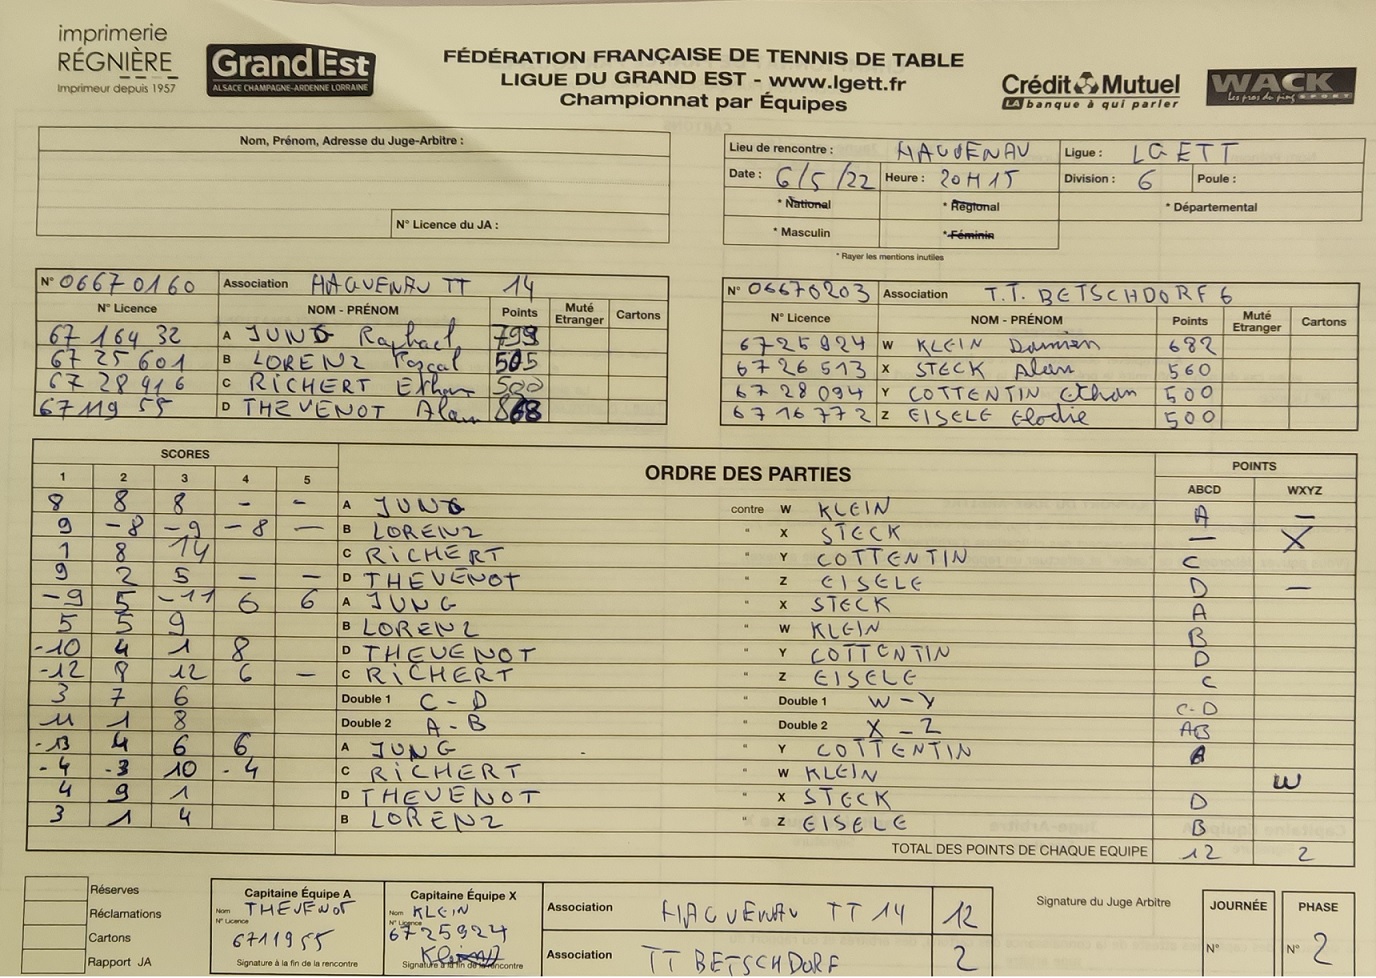 imprimerie
RÉGNIÈRE
Imprimeur depuis 1957
GrandEst
ALSACE CHAMPAGNE-ARDENNE LORRAINE
FÉDÉRATION FRANÇAISE DE TENNIS DE TABLE
LIGUE DU GRAND EST - www.lgett.fr
Championnat par Équipes
Crédit Mutuel
LA banque à qui parler
WACK
Les pros du ping SPORT
Nom, Prénom, Adresse du Juge-Arbitre :
N° Licence du JA :
Lieu de rencontre : HAGUENAU Ligue : LGETT
Date : 6/5/22 Heure : 20H15 Division : 6 Poule :
* National * Régional * Départemental
* Masculin * Féminin
* Rayer les mentions inutiles
N° 06670160 Association HAGUENAU TT 14
N° Licence NOM - PRÉNOM Points Muté Etranger Cartons
67 164 32 A JUNG Raphael 799
67 25 601 B LORENZ Pascal 505
67 28 916 C RICHERT Ethan 500
67119 55 D THEVENOT Alain 868
N° 06670203 Association T.T. BETSCHDORF 6
N° Licence NOM - PRÉNOM Points Muté Etranger Cartons
6725924 W KLEIN Damien 682
6726513 X STECK Alan 560
6728094 Y COTTENTIN Ethan 500
6716772 Z EISELE Elodie 500
SCORES ORDRE DES PARTIES POINTS
1 2 3 4 5 ABCD WXYZ
8 8 8 - - A JUNG contre W KLEIN A —
9 -8 -9 -8 — B LORENZ " X STECK — X
1 8 14 C RICHERT " Y COTTENTIN C
9 2 5 - - D THEVENOT " Z EISELE D —
-9 5 -11 6 6 A JUNG " X STECK A
5 5 9 B LORENZ " W KLEIN B
-10 4 1 8 D THEVENOT " Y COTTENTIN D
-12 8 12 6 - C RICHERT " Z EISELE C
3 7 6 Double 1 C - D " Double 1 W - Y C-D
11 1 8 Double 2 A - B " Double 2 X - Z AB
-13 4 6 6 A JUNG " Y COTTENTIN A
-4 -3 10 -4 C RICHERT " W KLEIN W
4 9 1 D THEVENOT " X STECK D
3 1 4 B LORENZ " Z EISELE B
TOTAL DES POINTS DE CHAQUE EQUIPE 12 2
Réserves
Réclamations
Cartons
Rapport JA
Capitaine Équipe A
Nom THEVENOT
N° Licence
6711955
Signature à la fin de la rencontre
Capitaine Équipe X
Nom KLEIN
N° Licence
6725924
Signature à la fin de la rencontre
Association HAGUENAU TT 14 12
Association TT BETSCHDORF 2
Signature du Juge Arbitre
JOURNÉE
N°
PHASE
N° 2